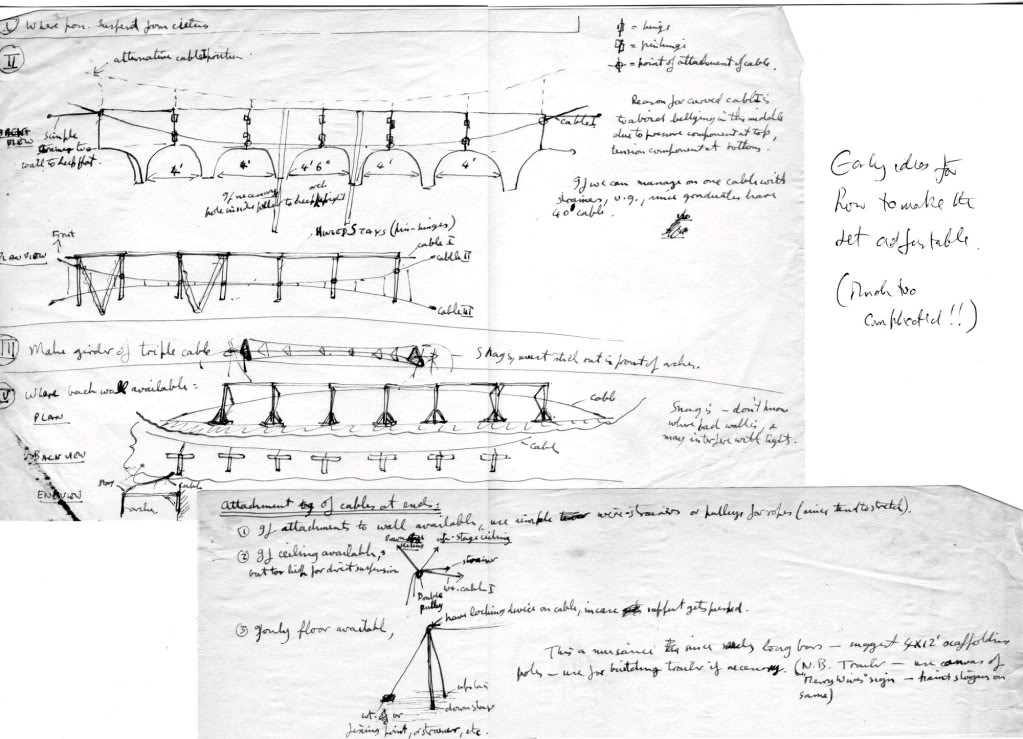 I Where poss. suspend from
II
alternative cable I position
= hinge
= pin hinge
= point of attachment of cable.
Reason for curved cable is
to avoid bellying in the middle
due to pressure component at top,
tension component at bottom.
BACK VIEW
simple
wall to keep flat.
cable I
4' 4' 4'6" 4' 4'
arch
If necessary
pole inside pillar to keep upright
If we can manage on one cable with
strainers, v.g., since graduates have
40' cable.
Early ideas for
how to make the
set adjustable.
(Much too
complicated!!)
Front
STAYS (pin-hinges)
PLAN VIEW
cable I
cable II
cable III
III Make girder of triple cable
Snag is, must stick out in front of arches.
Where back wall available:
PLAN
cable
Snag is – don't know
where back wall is, &
may interfere with lights.
BACK VIEW
cable
END VIEW
stay
cable
arches
Attachment of cables at ends:
① If attachments to wall available, use simple wire-strainers or pulleys for ropes (since tend to stretch).
② If ceiling available,
but too high for direct suspension
up-stage ceiling
strainer
cable I
Double
pulley
have locking device on cable, in case support gets pushed.
③ If only floor available,
This a nuisance since needs long bars – suggest 4x12' scaffolding
poles – use for building trailer if necessary. (N.B. Trailer – use canvas of
"Merry Wives" sign – paint slogan on
same)
upstage
downstage
wt. or
fixing point, or strainer, etc.